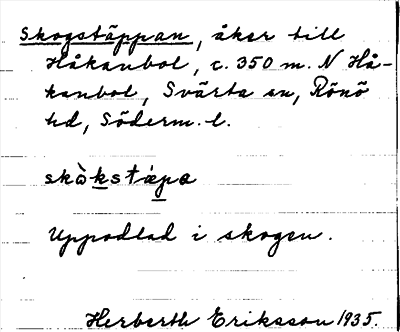 Skogstäppan, åker till
Håkanbol, c. 350 m. N Hå-
kanbol, Svärta sn, Rönö
hd, Söderm. l.
skòkstæ̀pa
Uppodlad i skogen.
Herberth Eriksson 1935.